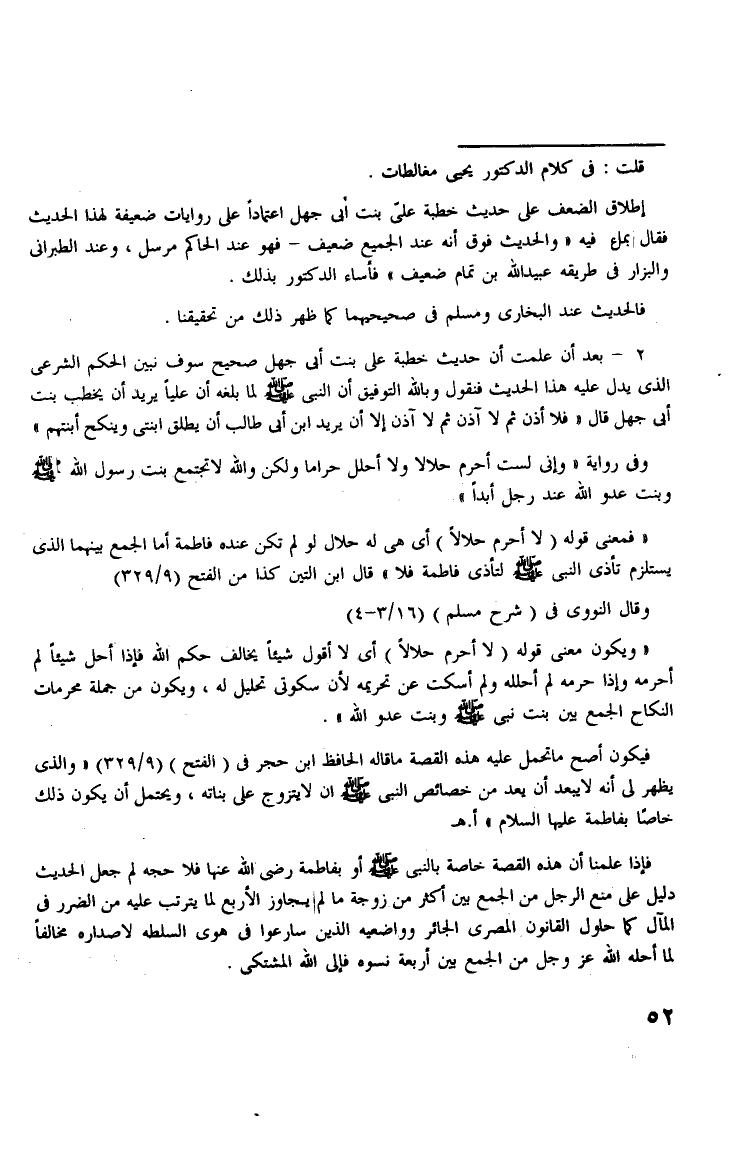 قلت : فى كلام الدكتور يحيى مغالطات .
إطلاق الضعف على حديث خطبة علىّ بنت أبى جهل اعتماداً على روايات ضعيفة لهذا الحديث
فقال فيه « والحديث فوق أنه عند الجميع ضعيف – فهو عند الحاكم مرسل ، وعند الطبرانى
والبزار فى طريقه عبيدالله بن تمام ضعيف » فأساء الدكتور بذلك .
فالحديث عند البخارى ومسلم فى صحيحيهما كما ظهر ذلك من تحقيقنا .
٢ – بعد أن علمت أن حديث خطبة على بنت أبى جهل صحيح سوف نبين الحكم الشرعى
الذى يدل عليه هذا الحديث فنقول وبالله التوفيق أن النبى ﷺ لما بلغه أن علياً يريد أن يخطب بنت
أبى جهل قال « فلا أذن ثم لا آذن ثم لا آذن إلا أن يريد ابن أبى طالب أن يطلق ابنتى وينكح أبنتهم »
وفى رواية « وإنى لست أحرم حلالا ولا أحلل حراما ولكن والله لاتجتمع بنت رسول الله ﷺ
وبنت عدو الله عند رجل أبداً »
« فمعنى قوله ( لا أحرم حلالاً ) أى هى له حلال لو لم تكن عنده فاطمة أما الجمع بينهما الذى
يستلزم تأذى النبى ﷺ لتأذى فاطمة فلا » قال ابن التين كذا من الفتح (٣٢٩/٩)
وقال النووى فى ( شرح مسلم ) (٣/١٦–٤)
« ويكون معنى قوله ( لا أحرم حلالاً ) أى لا أقول شيئاً يخالف حكم الله فإذا أحل شيئاً لم
أحرمه وإذا حرمه لم أحلله ولم أسكت عن تحريمه لأن سكوتى تحليل له ، ويكون من جملة محرمات
النكاح الجمع بين بنت نبى ﷺ وبنت عدو الله » .
فيكون أصح ماتحمل عليه هذه القصة ماقاله الحافظ ابن حجر فى ( الفتح ) (٣٢٩/٩) « والذى
يظهر لى أنه لايبعد أن يعد من خصائص النبى ﷺ ان لايتزوج على بناته ، ويحتمل أن يكون ذلك
خاصًا بفاطمة عليها السلام » أ.هـ
فإذا علمنا أن هذه القصة خاصة بالنبى ﷺ أو بفاطمة رضى الله عنها فلا حجه لم جعل الحديث
دليل على منع الرجل من الجمع بين أكثر من زوجة ما لم يجاوز الأربع لما يترتب عليه من الضرر فى
المآل كما حلول القانون المصرى الجائر وواضعيه الذين سارعوا فى هوى السلطه لاصداره مخالفاً
لما أحله الله عز وجل من الجمع بين أربعة نسوه فإلى الله المشتكى .
٥٢